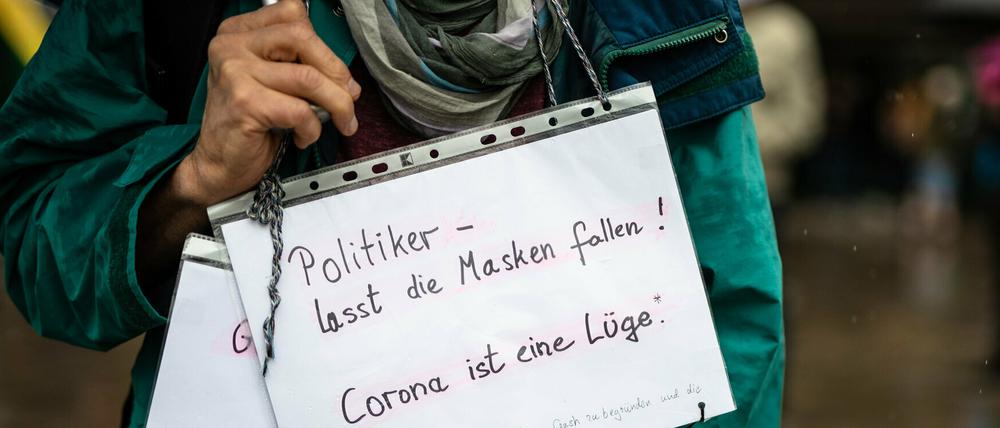 Politiker -
lasst die Masken fallen !
Corona ist eine Lüge.*
zu begründen und die
G